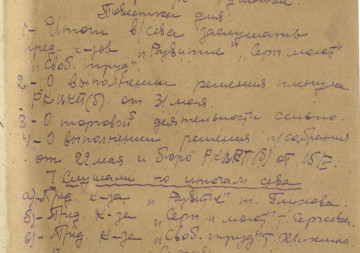 Повестка дня
1- Итоги сева заслушать
пред. к-зов "Развитие", "Серп и молот"
и "Своб. труд"
2- О выполнении решения пленума
РКВКП(б) от 31 мая
3- О торговой деятельности сельпо.
4- О выполнении решения п/собрания
от 22 мая и бюро РКВКП(б) от 15/V.
1 Слушали по итогам сева
а)- Пред. к-за "Развитие" т.
б)- Пред. к-за "Серп и молот" т.
в)- Пред. к-за "Своб. труд" т.